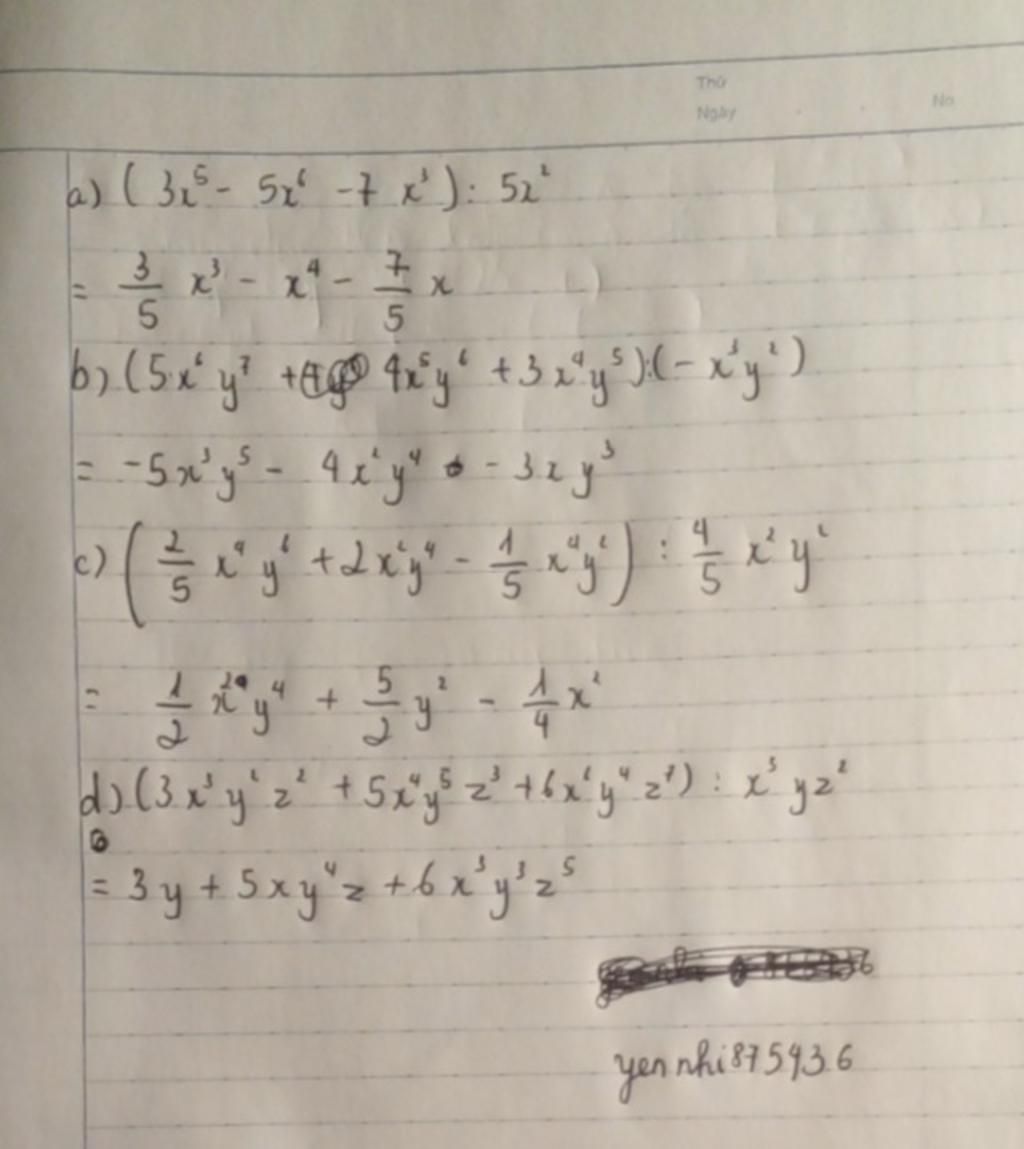 Thứ
Ngày No
a) (3x⁵ - 5x⁶ - 7 x³) : 5x²
= 3/5 x³ - x⁴ - 7/5 x
b) (5x⁶y⁷ + 4x⁵y⁶ + 3x⁴y⁵) : (- x³y²)
= -5x³y⁵ - 4x²y⁴ - 3xy³
c) (2/5 x⁴y⁶ + 2x²y⁴ - 1/5 x⁴y²) : 4/5 x²y²
= 1/2 x²y⁴ + 5/2 y² - 1/4 x²
d) (3x³y²z² + 5x⁴y⁵z³ + 6x⁶y⁴z⁷) : x³yz²
= 3y + 5xy⁴z + 6x³y³z⁵
yennhi875936